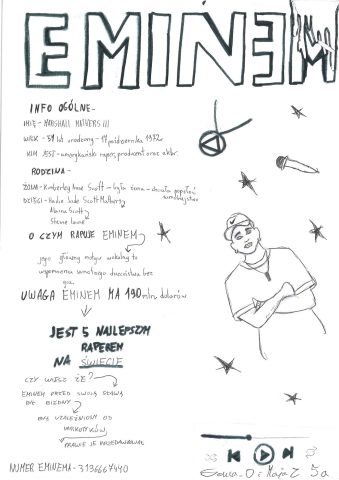 EMINEM
INFO OGÓLNE-
IMIĘ - MARSHALL MATHERS III
WIEK - 51 lat urodzony - 17 października 1972
KIM JEST - amerykański raper, producent oraz aktor.
RODZINA-
ŻONA - Kimberley Anne Scott - była żona - chciała popełnić samobójstwo
DZIECI - Hailie Jade Scott Mathers
Alaina Scott
Stevie Laine
O CZYM RAPUJE EMINEM
jego główny motyw wokalny to
wspomnienia samotnego dzieciństwa bez
ojca.
UWAGA EMINEM MA 190 mln. dolarów
JEST 5 NAJLEPSZYM
RAPEREM
NA ŚWIECIE
CZY WIESZ ŻE?
EMINEM PRZED SWOJĄ SŁAWĄ
BYŁ BIEDNY
BYŁ UZALEŻNIONY OD
NARKOTYKÓW,
PRAWIE JE PRZEDAWKOWAŁ
NUMER EMINEMA - 3136667440
i Maja Z. 5a